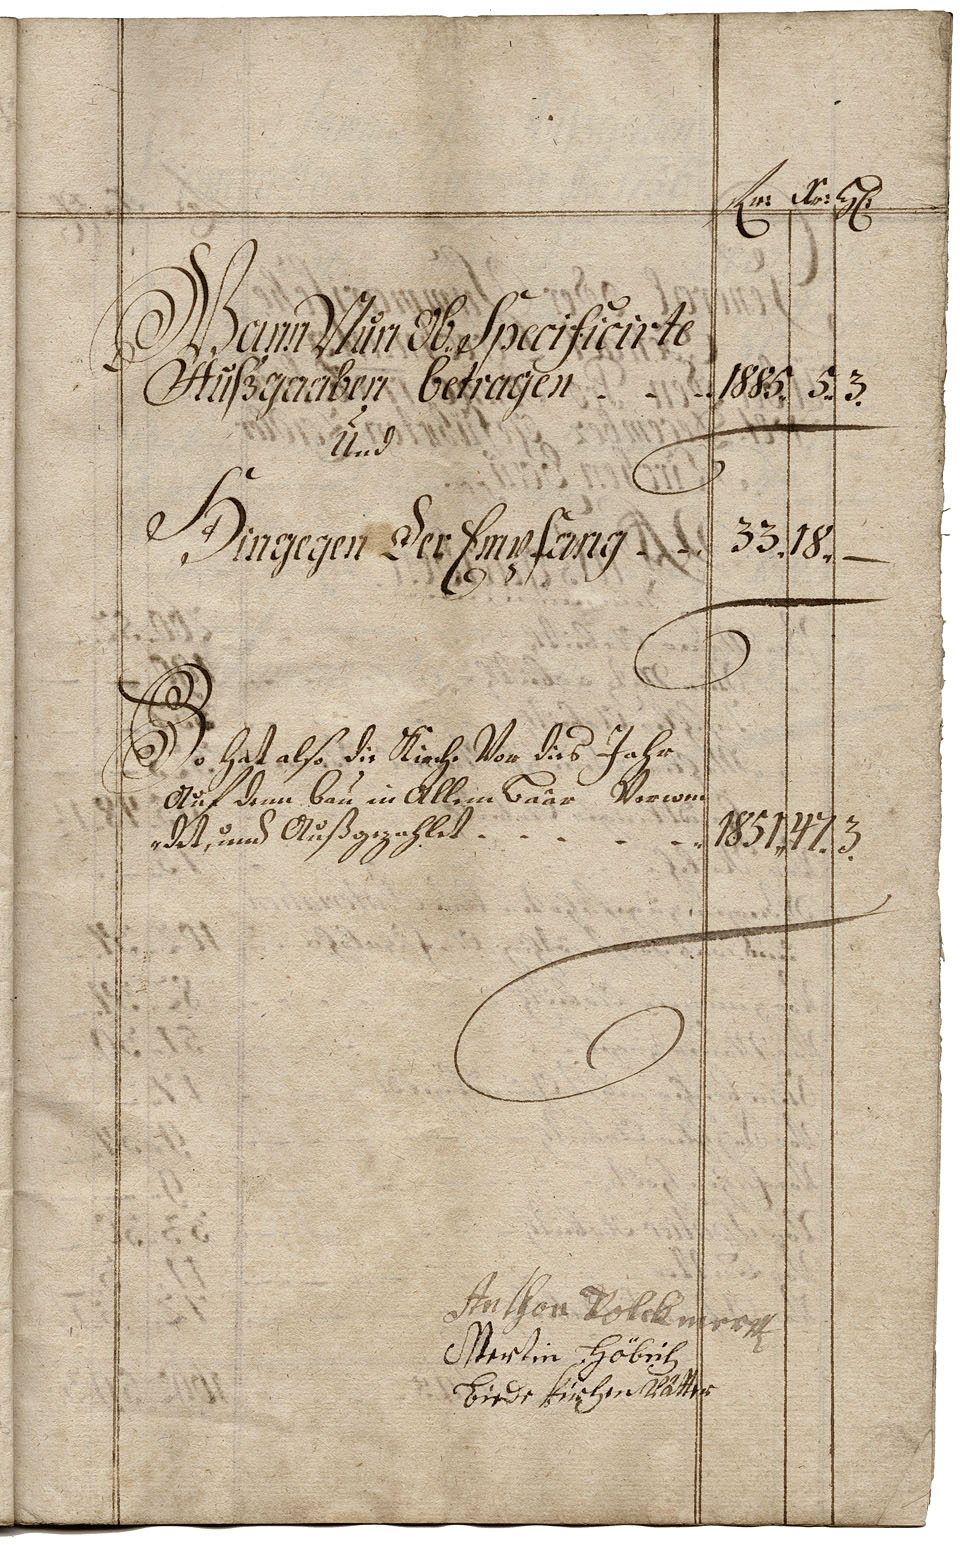 fr: Xr: hl:
Wann Nun Ob Specificirte
Außgaaben betragen - - - 1885. 5. 3.
Und
Hingegen Der Empfang - - - 33. 18. —
So hat also die Kirche Vor dies Jahr
Auf denn bau in Allem baar Verwen
det, und Außgezahlet - - - - - 1851. 47. 3.
Anthon Volckmer
Mertin
Beede Kirchen Vätter